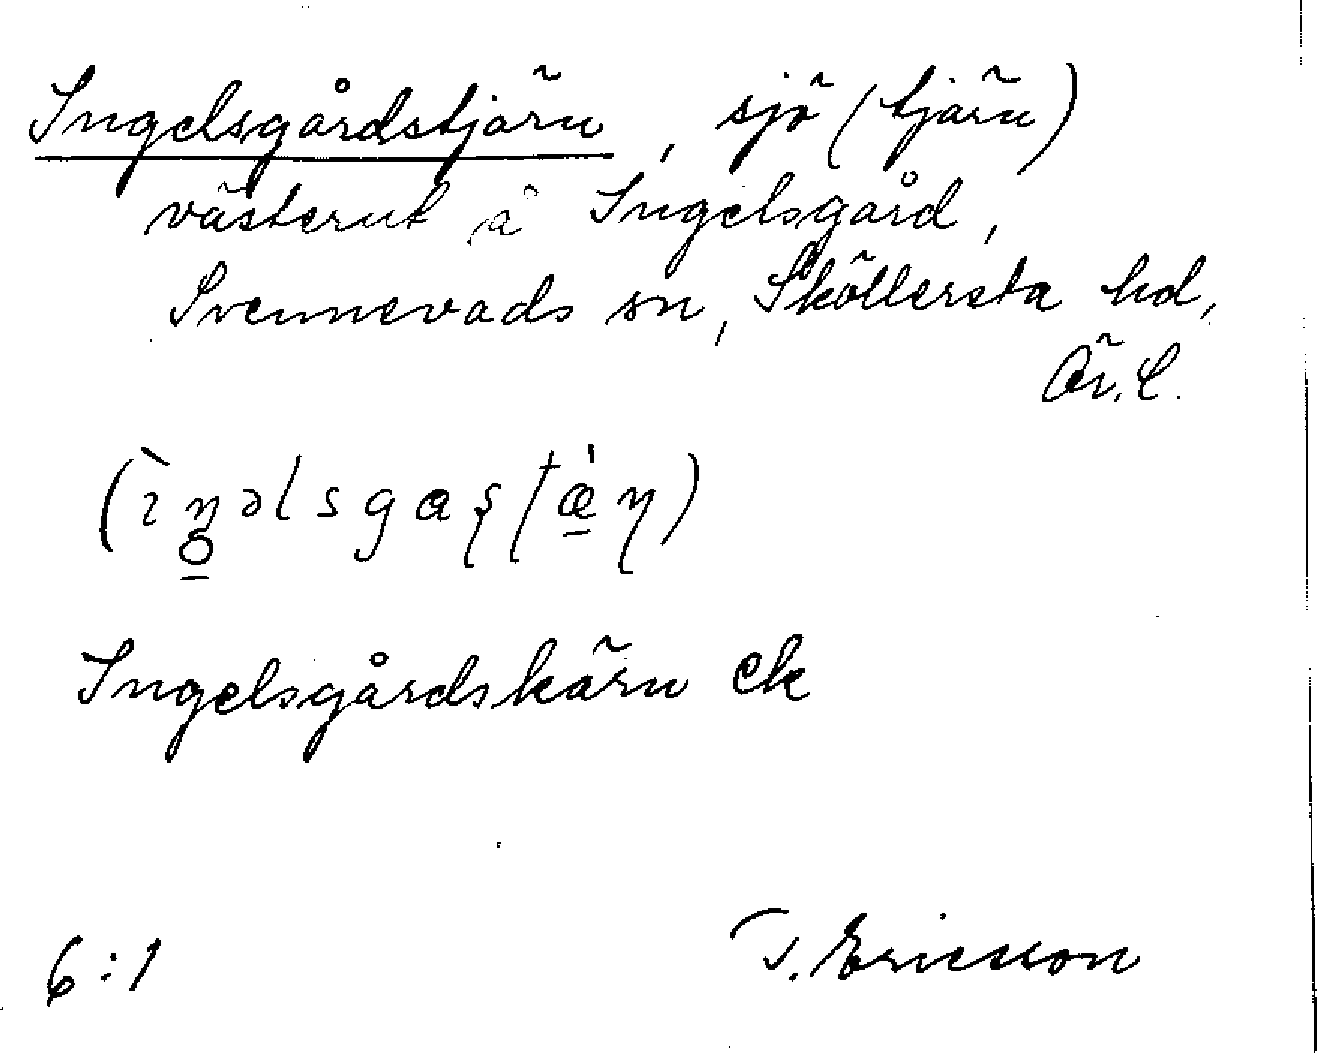 Ingelsgårdstjärn, sjö (tjärn)
västerut å Ingelsgård,
Svennevads sn, Sköllersta hd,
Ör. l.
Ingelsgårdskärn ek
6:1 T. Ericsson